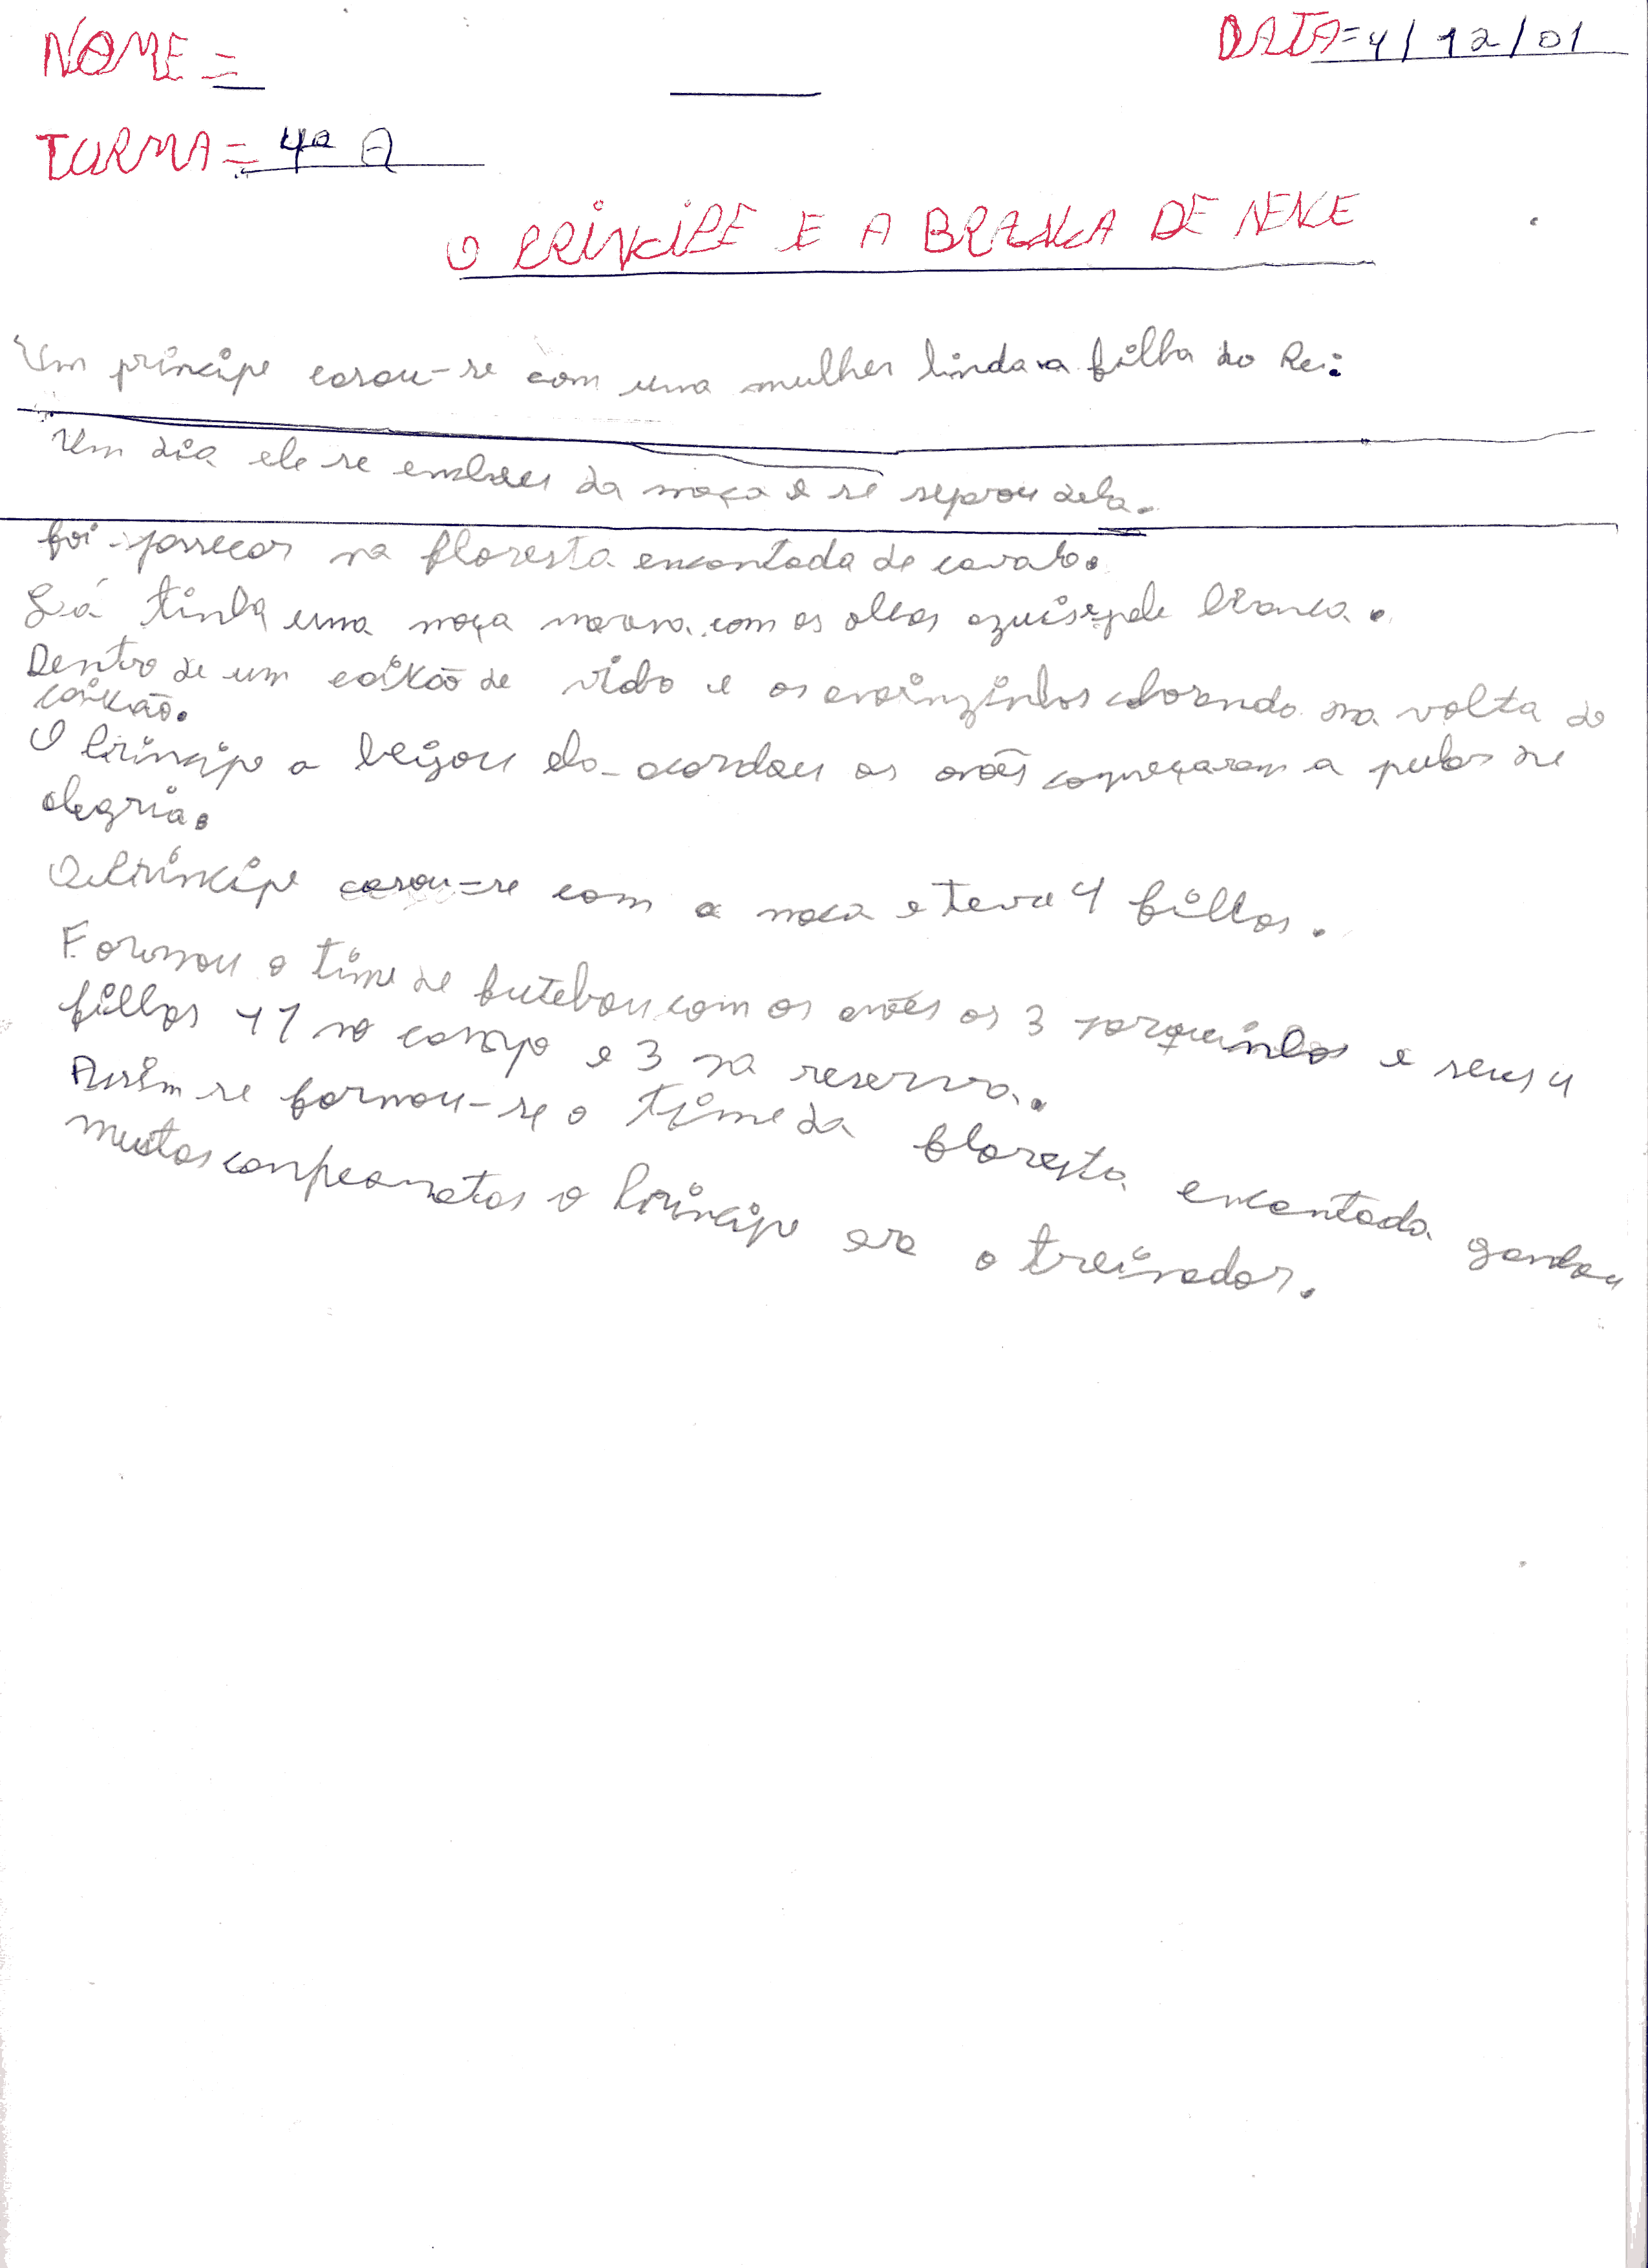 NOME =
DATA = 4 / 12 / 01
TURMA = 4ª A
O PRÍNCIPE E A BRANCA DE NEVE
Um príncipe casou-se com uma mulher linda a filha do Rei.
Um dia ele se emcheu da moça e se separou dela.
foi parrecar na floresta encantada de cavalo.
Lá tinha uma moça morena com os olhos azuis e pele branca.
Dentro de um caixão de vidro e os anõinzinhos chorando na volta do
caixão.
O Príncipe a beijou ela acordou os anões começaram a pular de
alegria.
O Príncipe casou-se com a moca e teve 4 filhos.
Formou o time de futebou com os anões os 3 porquinhos e seus 4
filhos 11 no campo e 3 na reserva.
Assim se formou-se o time da floresta encantada ganhou
muitos conpeonatos o Príncipe era o treinador.